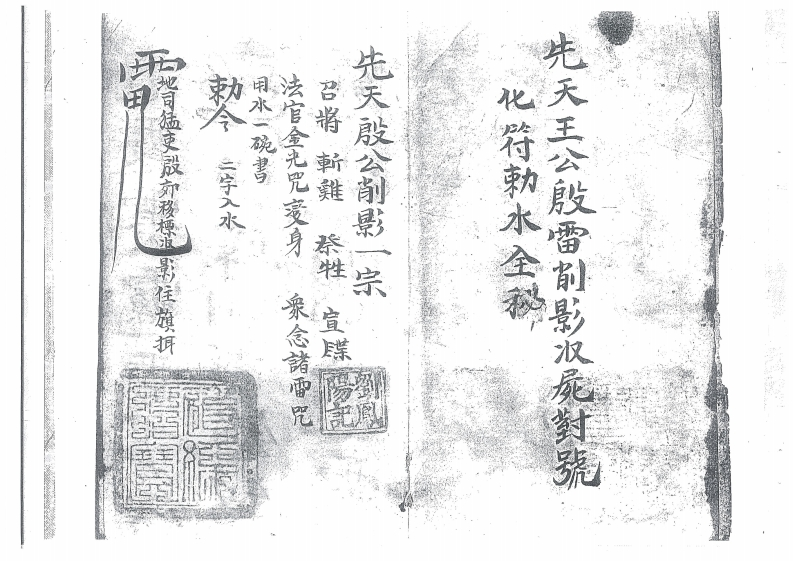 先天王公殷雷削影収屍對號
化符勅水全秘
先天殷公削影一宗
召將 斬雞 祭牲 宣牒
法官金光咒变身 衆念諸雷咒
用水一碗書
勅令 二字入水
地司猛吏殷郊移標収影住旗拜
劉鳳
陽記
道經
師寶